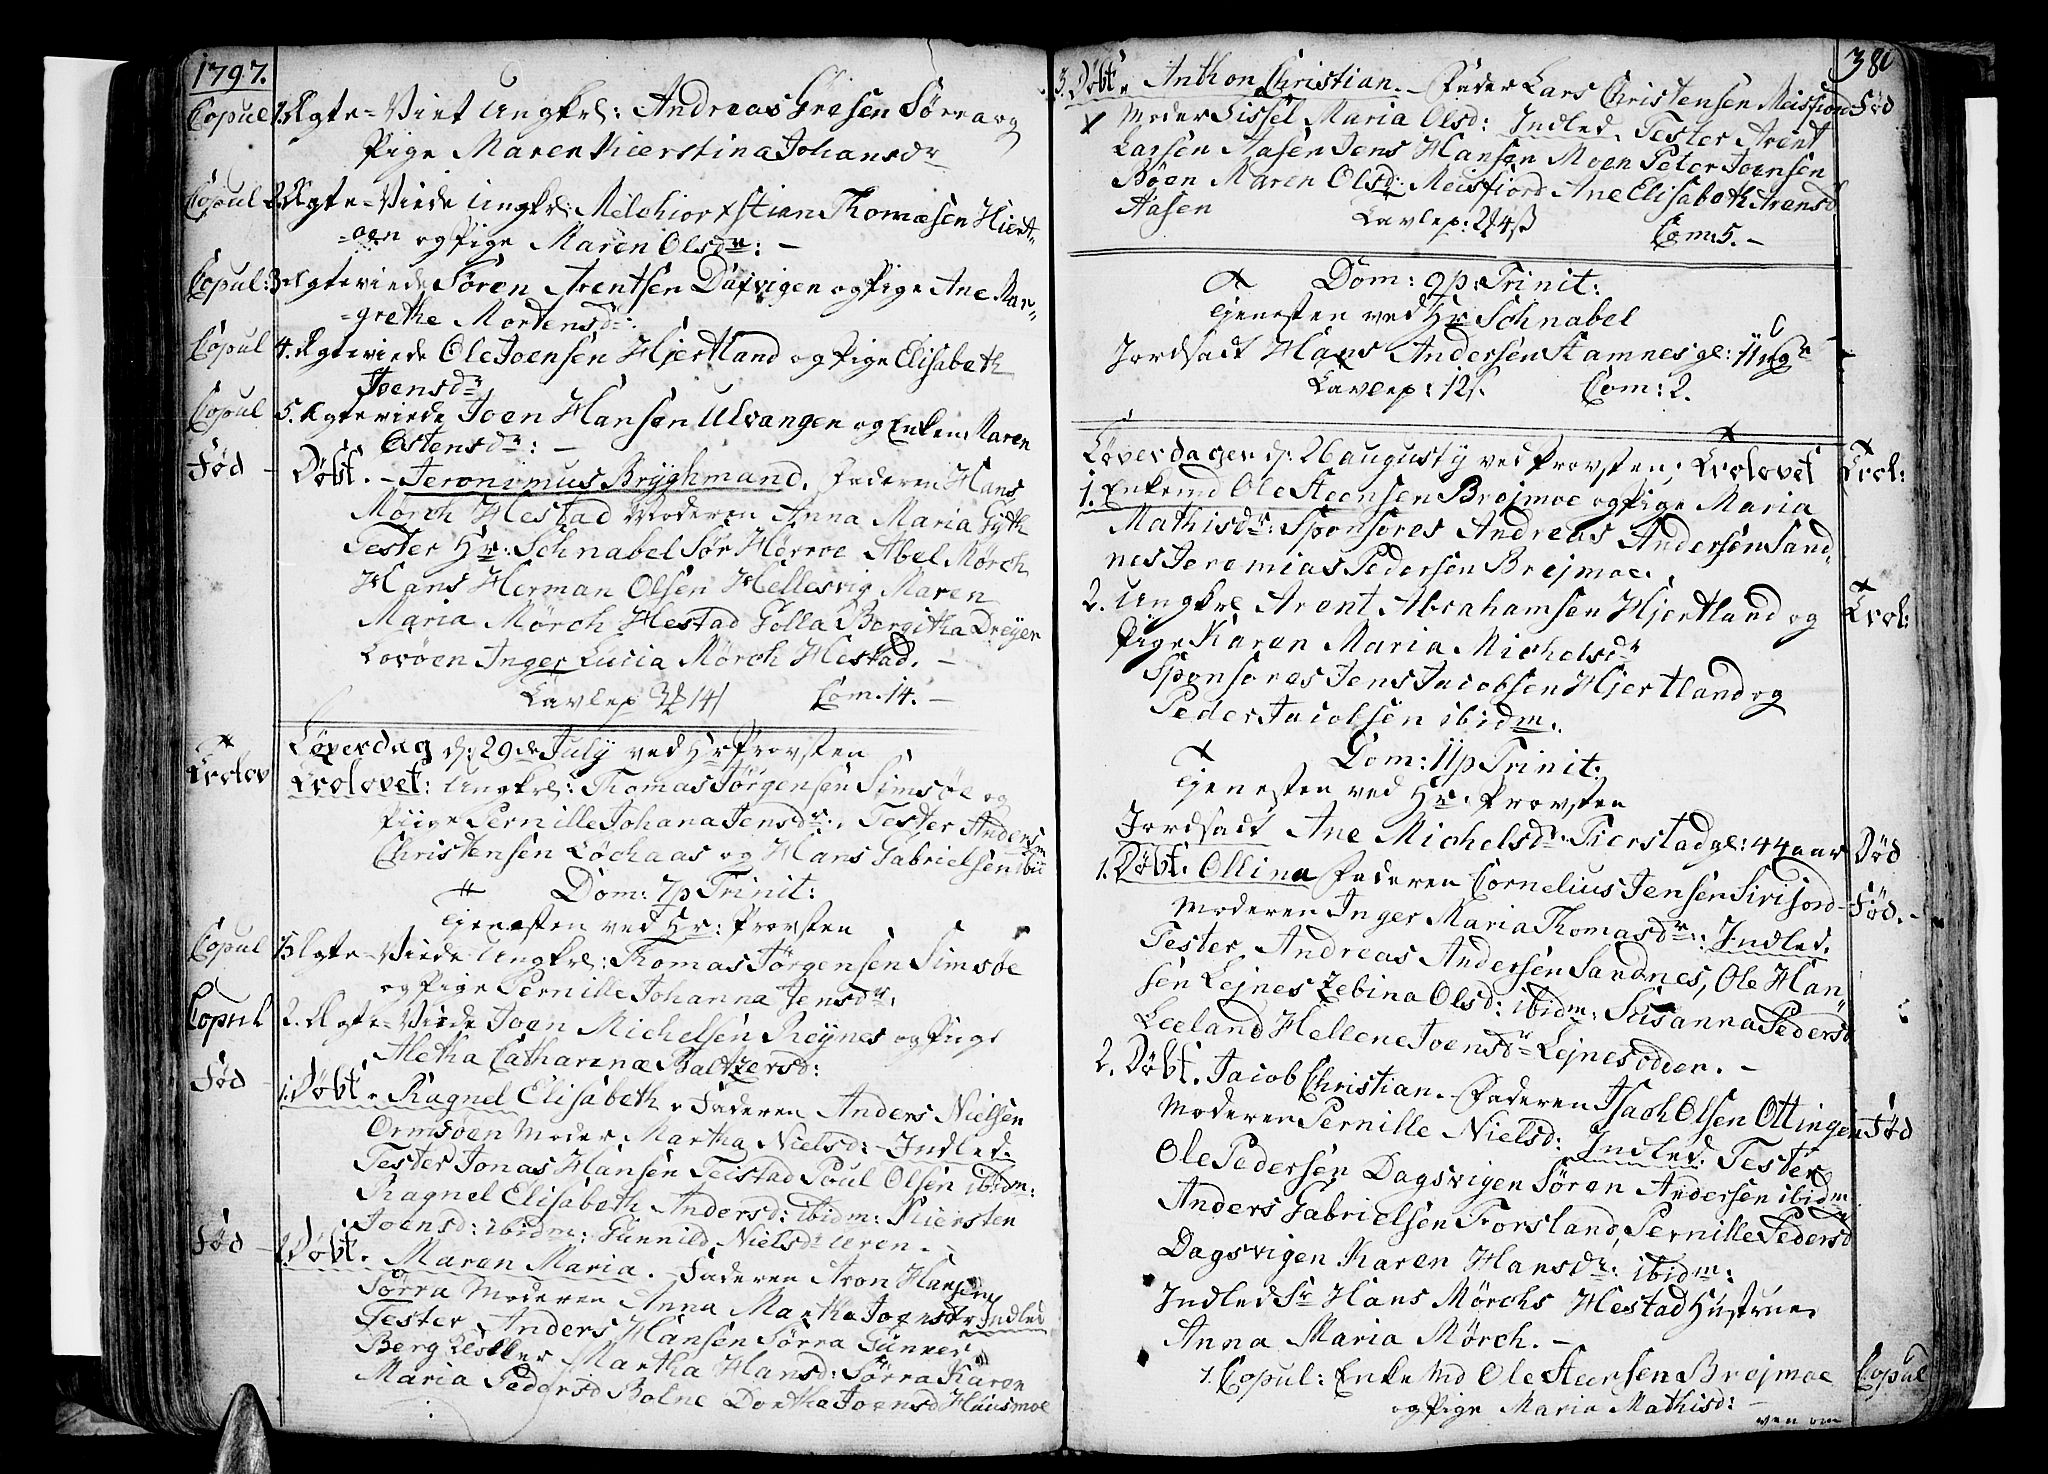 1797.
Copul 1. Ægte-Viet Ungkrl: Andreas Gresen Sørra og
Pige Maren Kierstina Johansdr
Copul 2. Ægte-Viede Ungkrl: Melchior Xstian Thomæsen Hiert-
-øen og Pige Maren Olsdr: -
Copul: 3. Ægteviede Søren Arentsen Dafvigen og Pige Ane Mar-
-grethe Mortensdr:
Copul 4. Ægteviede Ole Joensen Hjertland og Pige Elisabeth
Joensdr
Copul 5. Ægteviede Joen Hansen Ulvangen og Enken Maren
Ostensdr: -
Fød - Døbt. - Jeronimus Bryghmand. Faderen Hans
Mørch Hestad Moderen Anna Maria Gyth
Tester Hr: Schnabel Sør Herrøe Abel Mørch
Hans Herman Olsen Hellesvig Maren
Maria Mørch Hestad Golla Borgitha Dreyer
Lovøen Inger Lucia Mørch Hestad. -
Tavlep 3 14 Com. 14. -
Løverdag d: 29de July ved Hr Provsten
Trolov Trolovet: Ungkrl: Thomas Jørgensen Simsøe og
Piige Pernille Johana Jensdr: Tester Anders
Christensen Løchaas og Hans Gabrielsen ibid
Dom: 7 p Trinit:
Tjenesten ved Hr: Provsten
Copul 1. Ægte-Viede Ungkrl: Thomas Jørgensen Simsøe
og Pige Pernille Johanna Jensdr:
Copul 2. Ægte-Viede Joen Michelsen Reynes og Pige
Aletha Catharina Baltzersd:
Fød - 1. Døbt. Ragnel Elisabeth. Faderen Anders Nielsen
Ormsøen Moder Martha Nielsd: - Indled.
Tester Jonas Hansen Teistad Poul Olsen ibidm:
Ragnel Elisabeth Andersd: ibidm: Kiersten
Joensd: ibidm: Gunnild Nielsdr Uren. -
Fød - 2. Døbt. Maren Maria. - Faderen Aron Hansen
Sørra Moderen Anna Martha Joensdr Indled
Tester Anders Hansen Sørra Gunner
Berg Martha Hansd: Sørra Karen
Maria Pedersd Bolne Dorthe Joensd Huusmoe
380
3. Døbt. Anthon Christian. - Fader Lars Christensen Meisfiord Fød
Moder Sissel Maria Olsd: Indled. Tester Arent
Larsen Aasen Jens Hansen Moen Peter Joensen
Bøen Maren Olsd: Meisfiord Ane Elisabeth Arensd
Aasen Tavlep: 2 4 ß Com: 5. -
Dom: 9 p: Trinit:
Tjenesten ved Hr Schnabel
Jordsadt Hans Andersen Stamnes gl: 11 Uger
Tavlep: 12 s. Com: 2.
Løverdagen d: 26 augusty ved Provsten; Trolovet Trol:
1. Enkemd Ole Steensen Brejmoe og Pige Maria
Mathisdr: Sponsores Andreas Andersen Sand-
nes Jeremias Pedersen Brejmoe.
2. Ungkrl Arent Abrahamsen Hjertland og Trol:
Pige Karen Maria Michelsdr
Sponsores Jens Jacobsen Hjertland og
Peder Jacobsen ibidm.
Dom: 11 p Trinit:
Tjenesten ved Hr: Provsten
Jordsadt Ane Michelsdr Tierstad gl: 44 aar Død
1. Døbt. Ollina Faderen Cornelius Jensen Sirifiord - Fød. -
Moderen Inger Maria Thomasdr: Indled.
Tester Andreas Andersen Sandnes, Ole Han-
sen Lejnes Zebina Olsd: ibidm: Susanna Pedersd
Leeland Hellene Joensdr Lejnesodden. -
2. Døbt. Jacob Christian. Faderen Isach Olsen Ottingen Fød
Moderen Pernille Nielsd: Indled. Tester
Ole Pedersen Dagsvigen Søren Andersen ibidm
Anders Gabrielsen Forsland, Pernille Pedersd
Dagsvigen Karen Hansdr: ibidm:
Indled Sr Hans Mørchs Hestad Hustrue
Anna Maria Mørch. -
1. Copul: Enke Md Ole Steensen Brejmoe Copul
og Pige Maria Mathisd: -
ven om